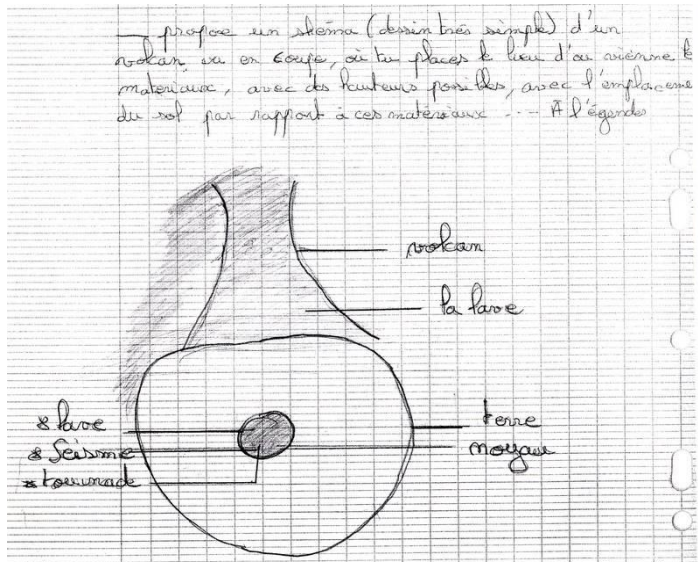 — propose un shéma (dessin très simple) d'un
volcan vu en coupe, où tu places le lieu d'où vienne le
matériaux, avec des hauteurs possibles, avec l'emplaceme
du sol par rapport à ces matériaux --- A l'égender
volcan
la lave
* lave
terre
* Séisme
noyau
* tournade